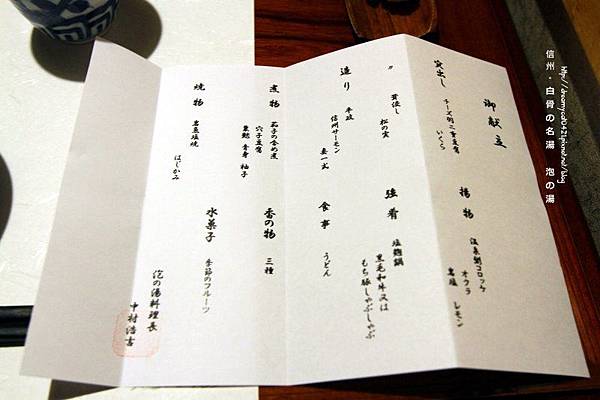 御献立
突出し
チーズ羽二重豆腐
いくら
〃
昔使し
松の実
造り
平政
信州サーモン
妻一式
煮物
茄子の含め煮
穴子豆腐
巣鶉 青身 柚子
焼物
岩魚塩焼
はじかみ
揚物
温泉粥コロッケ
オクラ
岩塩 レモン
強肴
塩麹鍋
黒毛和牛又は
もち豚しゃぶしゃぶ
食事
うどん
香の物
三種
水菓子
季節のフルーツ
泡の湯料理長
中村浩吉
信州・白骨の名湯 泡の湯
http://dreamycat0421.pixnet.net/blog